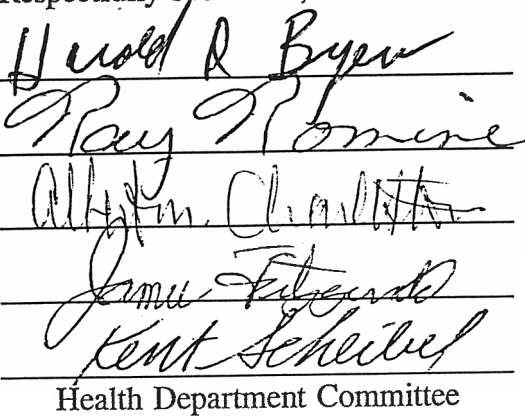 Respectfully
Harold R Byers
Ray Romine
James Fitzgerald
Kent Scheibel
Health Department Committee